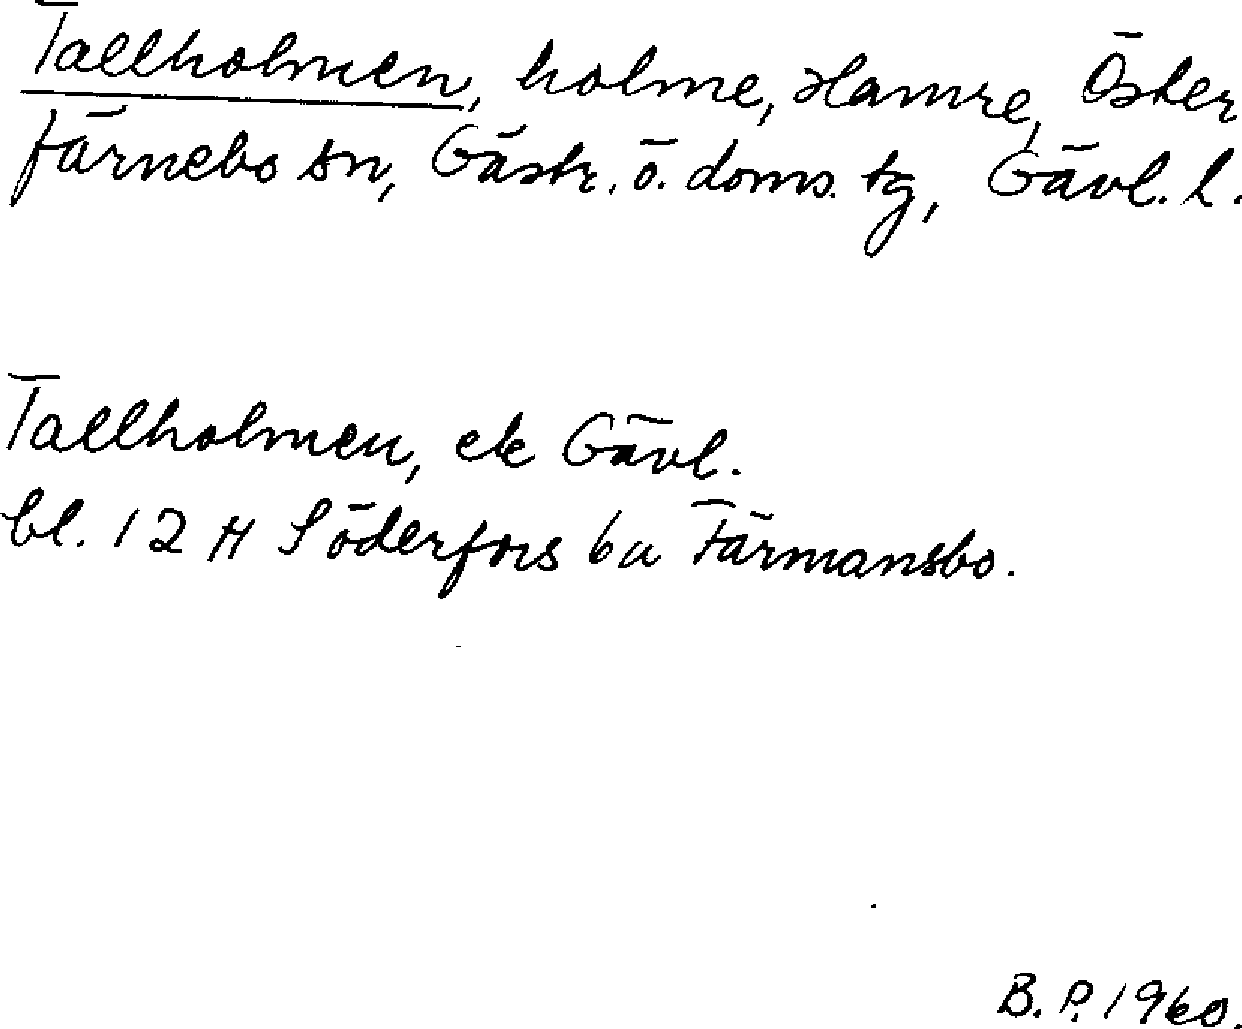 Tallholmen, holme, Hamre, Öster
färnebo sn, Gästr. ö. doms. tg, Gävl. l.
Tallholmen, ek Gävl.
bl. 12 H Söderfors 6a Färmansbo.
B. P. 1960.